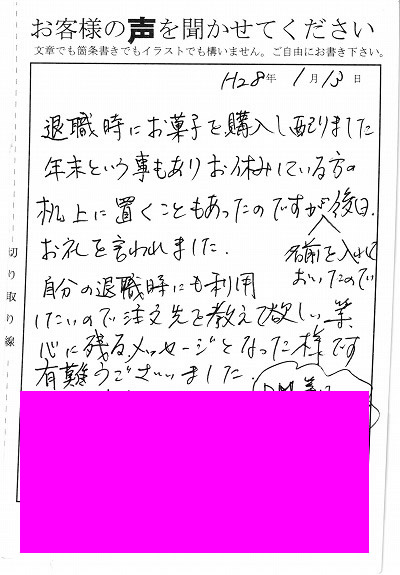 お客様の声を聞かせてください
文章でも箇条書きでもイラストでも構いません。ご自由にお書き下さい。
H28年 1月13日
退職時にお菓子を購入し配りました
年末という事もありお休みている方の
机上に置くこともあったのですが後日、
お礼を言われました。
名前を入れて
おいたので
自分の退職時にも利用
したいので注文先を教えて欲しい
心に残るメッセージとなった様です
有難うございました。
切り取り線